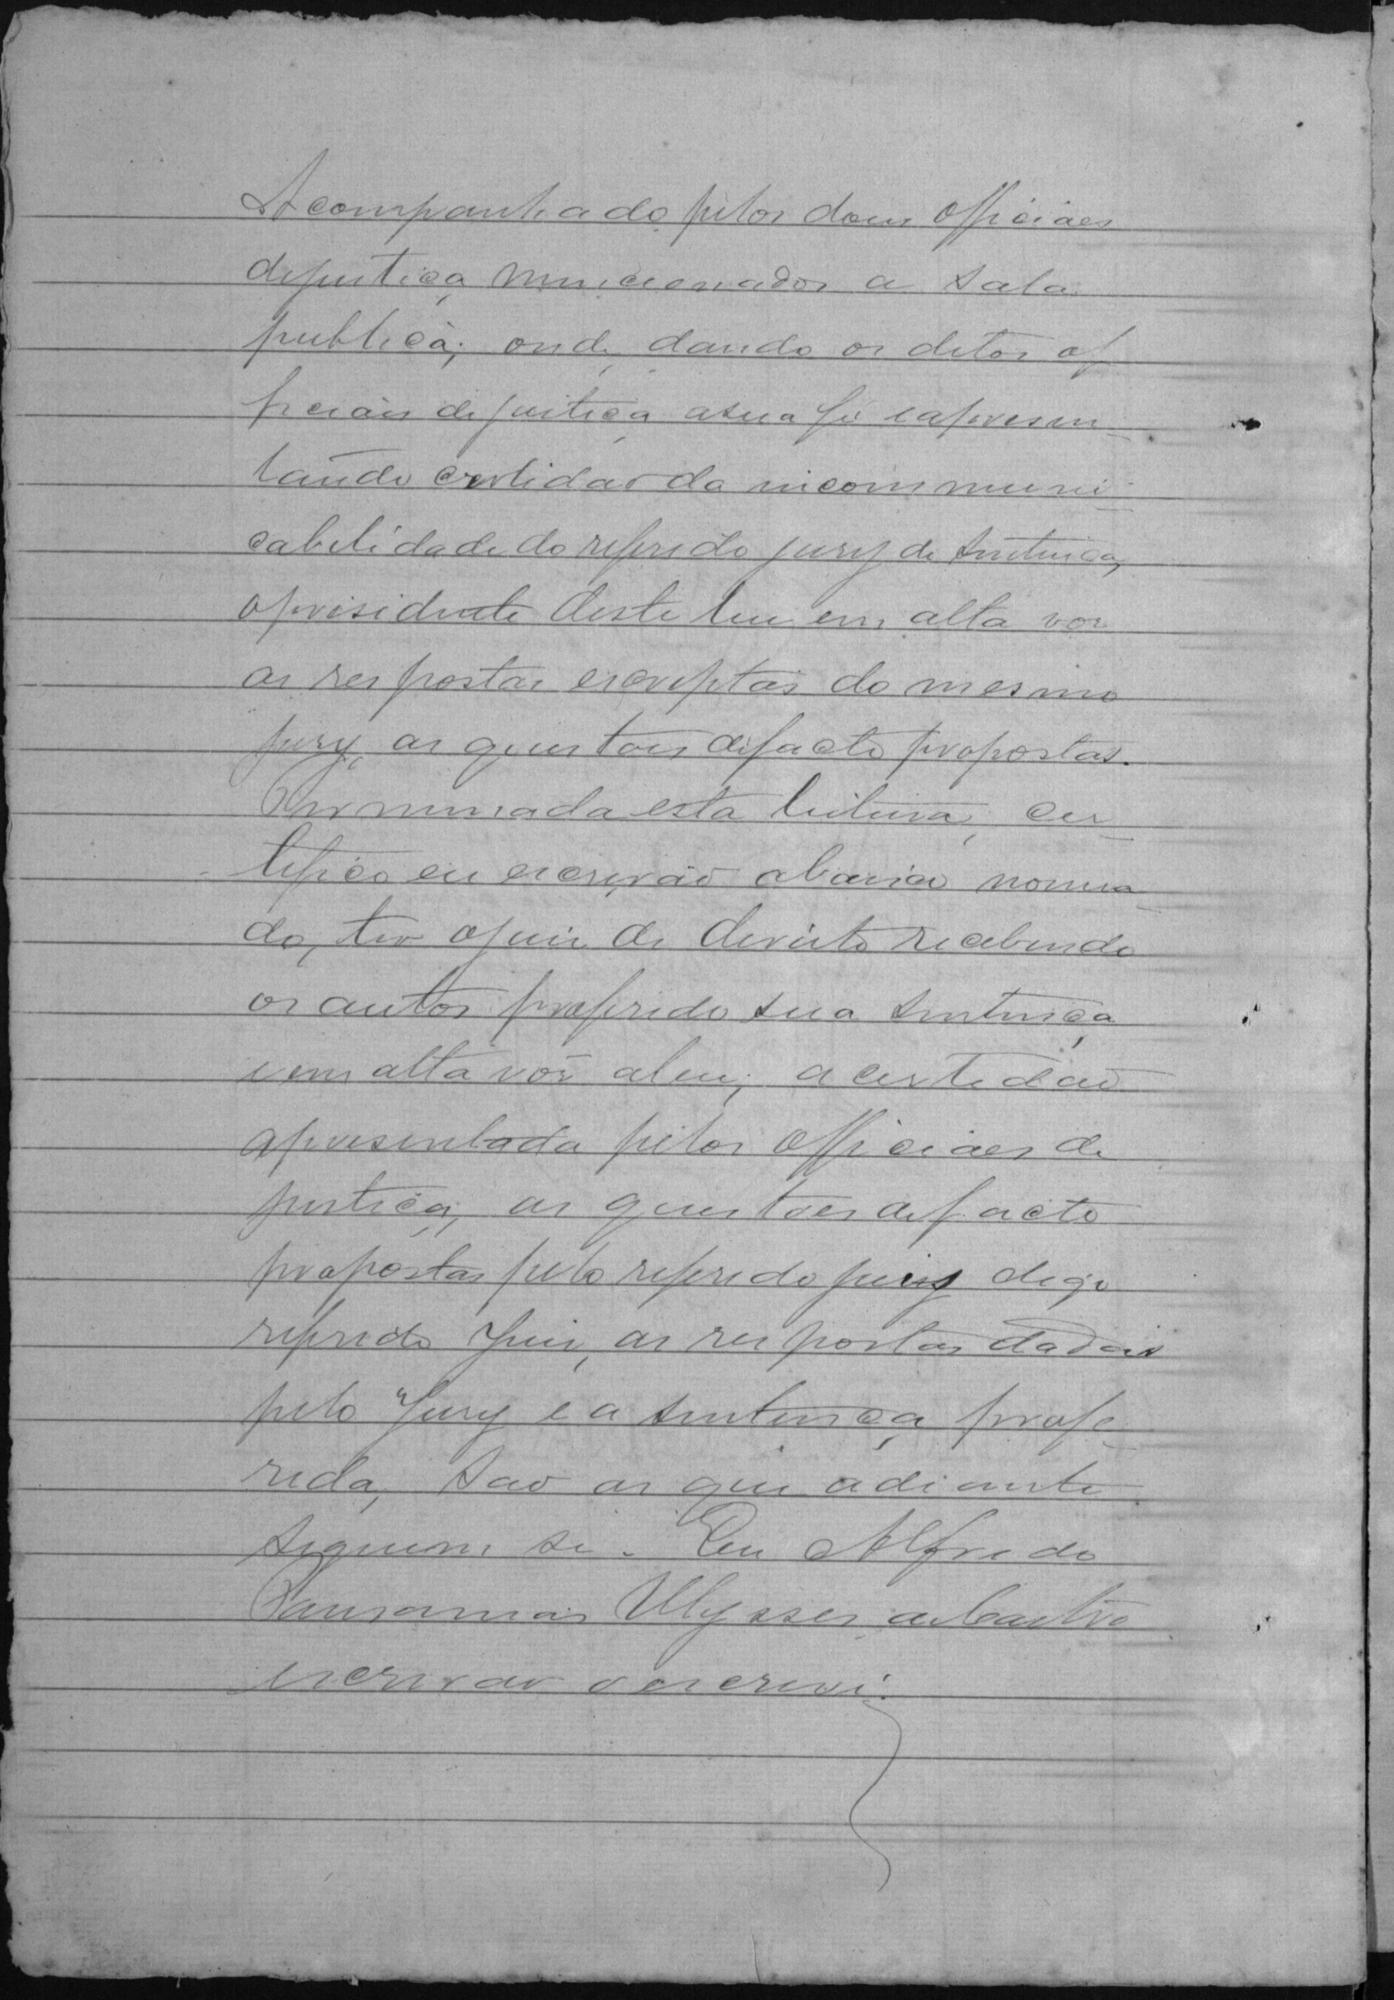 Acompanhado pelos dous officiaes
de justiça mencionados a sala
publica; onde dando os ditos of
ficiaes de justiça a sua fé e apresen-
tando certidão da incommuni-
cabilidade do referido jury de sentença,
o presidente deste leu em alta voz
as respostas escriptas do mesmo
jury, as questões de facto propostas.
Terminada esta leitura, cer-
tifico eu escrivão abaixo nomea-
do, ter o juiz de direito recebendo
os autos proferido sua sentença
e em alta voz a leu; a certidão
apresentada pelos officiaes de
justiça, as questões de facto
propostas pelo referido jury digo
referido Juiz, as respostas dadas
pelo Jury e a sentença profe-
rida, são as que adiante
seguem se. Eu Alfredo
Ulysses de Castro
escrivão o escrevi.